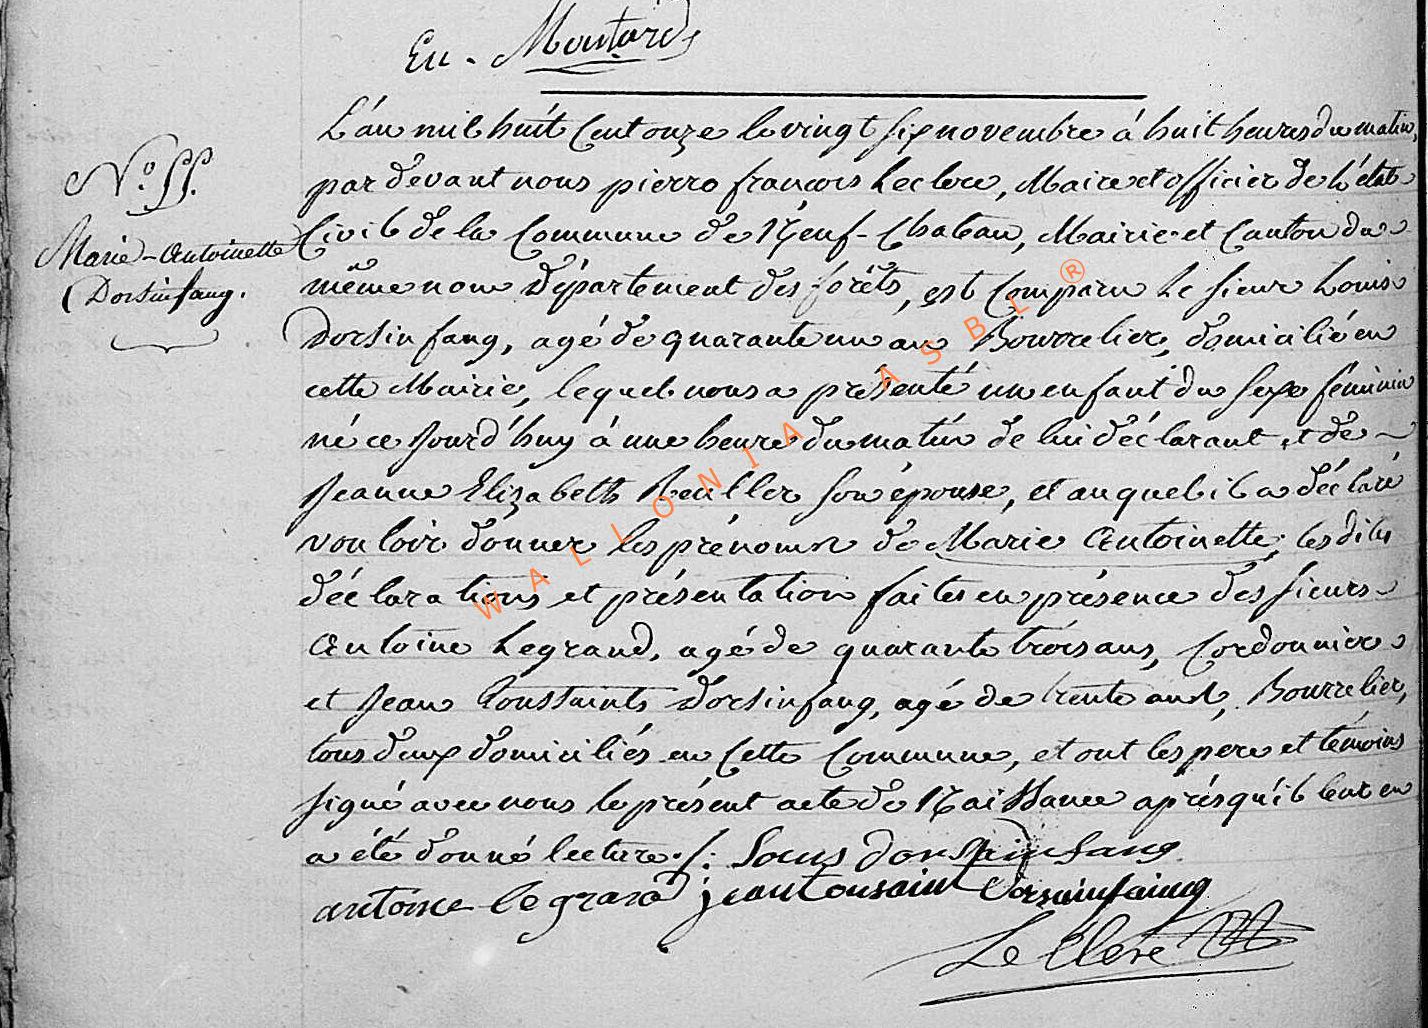 En. Moutard
L'an mil huit cent onze le vingt six novembre à huit heures du matin,
par devant nous pierre françois Leclerc, Maire et officier de L'état
N.º 55.
Civil de la Commune de Neuf-Chateau, Mairie et Canton du
Marie-Antoinette
même nom Département des forêts, est comparu Le sieur Louis
Dorsinfang.
Dorsinfang, agé de quarante un ans Bourrelier, domicilié en
cette Mairie, lequel nous a présenté un enfant du sexe féminin
né ce jourd'huy à une heure du matin de lui déclarant et de
Jeanne Elizabeth son épouse, et auquel il a déclaré
vouloir donner les prénoms de Marie Antoinette; les dites
déclarations et présentation faites en présence des sieurs
Antoine Legrand, agé de quarante trois ans, Cordonnier
et Jean Toussaint Dorsinfang, agé de trente ans, Bourrelier,
tous deux domiciliés en Cette Commune, et ont les pere et témoins
signé avec nous le présent acte de Naissance après qu'il leur en
a été donné lecture./. Louis dorsainfang
antoine le grand jean tousaint Dorsainfaing
Le Clerc
WALLONIA ASBL ®